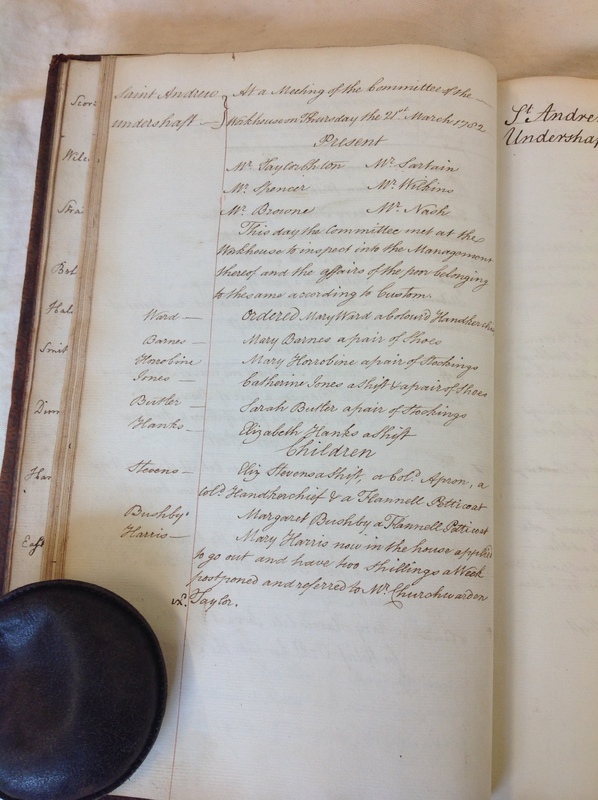 Saint Andrew } At a Meeting of the Committee of the
undershaft } Workhouse on Thursday the 21st March 1782
Present
Mr. Taylor Mr. Sartain
Mr. Spencer Mr. Wilkins
Mr. Browne Mr. Nash
This day the Committee met at the
Workhouse to inspect into the Management
thereof and the affairs of the poor belonging
to the same according to Custom.
Ward — Ordered Mary Ward a colour'd Handkerchie
Barnes — Mary Barnes a pair of Shoes
Horrobine Mary Horrobine a pair of Stockings
Jones — Catherine Jones a Shift & a pair of Shoes
Butler — Sarah Butler a pair of Stockings
Hanks — Elizabeth Hanks a Shift
Children
Stevens — Eliz Stevens a Shift, a Col.d Apron, a
Col.d Handkerchief & a Flannell Petticoat
Bushby. Margaret Bushby a Flannell Petticoat
Harris — Mary Harris now in the house applies
to go out and have two Shillings a Week
postponed and referred to Mr. Churchwarden
Taylor.
St. Andre
Undershaf